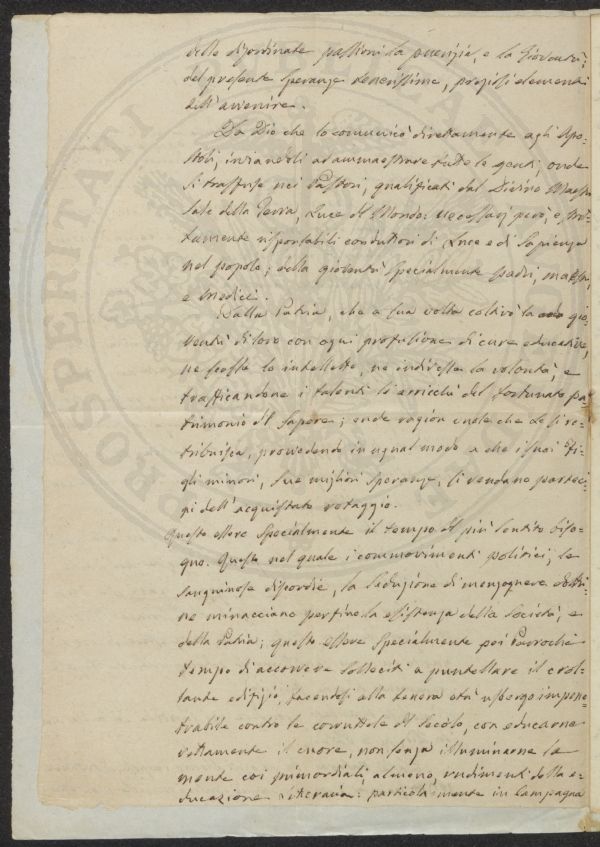 delle disordinate passioni la puerizia, e la Gioventù;
del presente speranze tenerissime, preziosi elementi
dell'avvenire.
Da Dio che lo comunicò direttamente agli Apo-
stoli, inviandoli ad ammaestrare tutte le genti; onde
si trasfuse nei Pastori, qualificati dal Divino Maestro
Sale della Terra, Luce del Mondo: necessarj però, e
tamente risponsabili conduttori di Luce e di Sapienza
nel popolo; della gioventù specialmente padri, maestri,
e Medici.
Dalla Patria, che a sua volta coltivò la gio-
ventù di loro con ogni profusione di cure educatrici,
ne the lo intelletto, ne indirizzò la volontà, e
trafficandone i talenti li arricchì del fortunato pa-
trimonio del Sapere; onde ragion vuole che la si re-
tribuisca, provvedendo in ugual modo a che i suoi Fi-
gli minori, sue migliori speranze, si rendano parteci-
pi dell'acquistato retaggio.
Questo essere specialmente il tempo del più sentito biso-
gno. Questo nel quale i commovimenti politici, le
sanguinose discordie, la seduzione di menzognere dottri-
ne minacciano perfino la esistenza della Società, e
della Patria; questo essere specialmente pei Parrochi
tempo di accorrere solleciti a puntellare il crol-
lante edifizio, facendosi alla tenera età usbergo impene-
trabile contro le corruttele del Secolo, con educarne
rettamente il cuore, non senza illuminarne la
mente coi primordiali almeno, rudimenti della e-
ducazione letteraria: particolarmente in Campagna
PROSPERITATI